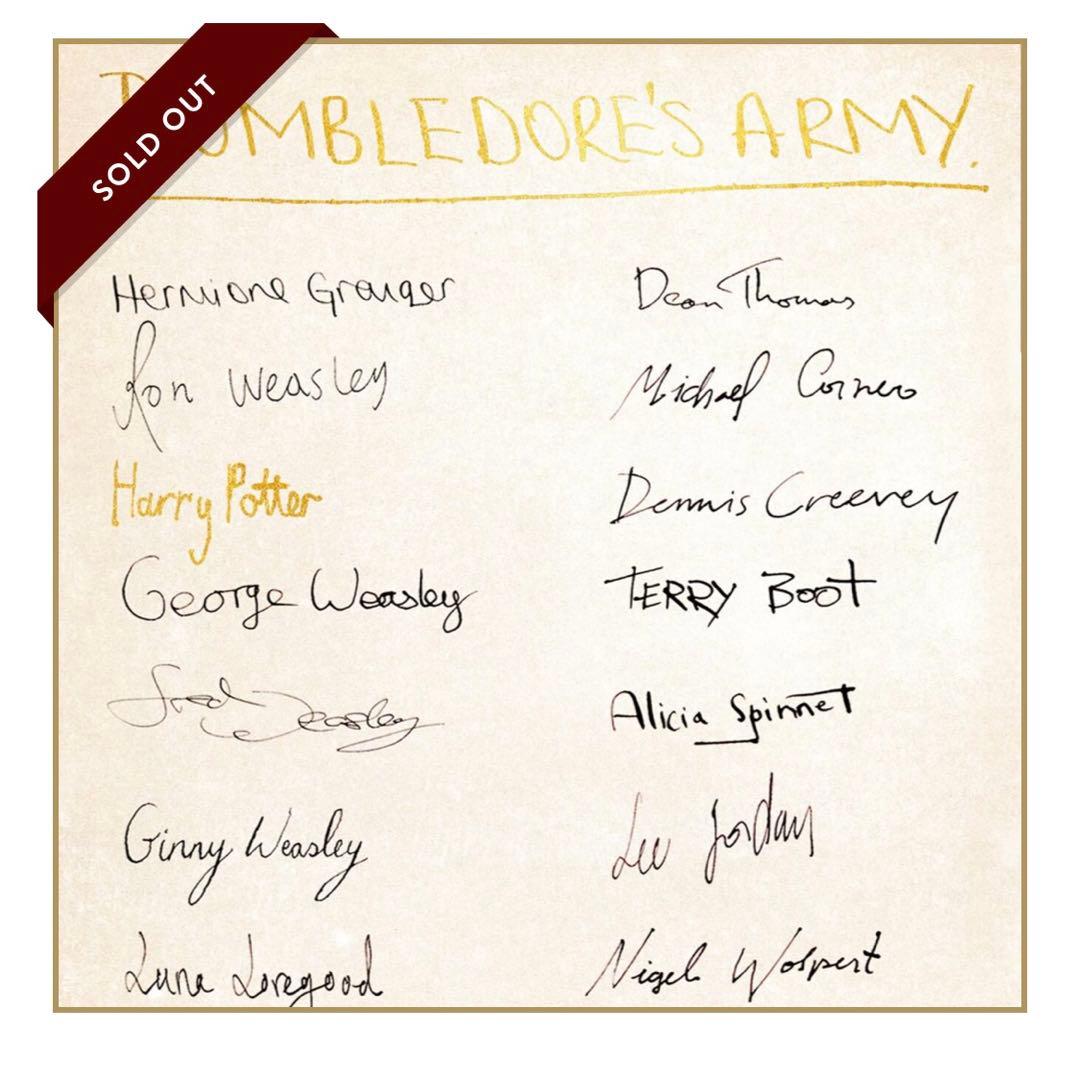 SOLD OUT
DUMBLEDORE'S ARMY.
Hermione Granger
Ron Weasley
Harry Potter
George Weasley
Fred Weasley
Ginny Weasley
Luna Lovegood
Dean Thomas
Michael Corner
Dennis Creevey
TERRY BOOT
Alicia Spinnet
Lee Jordan
Nigel Wolpert